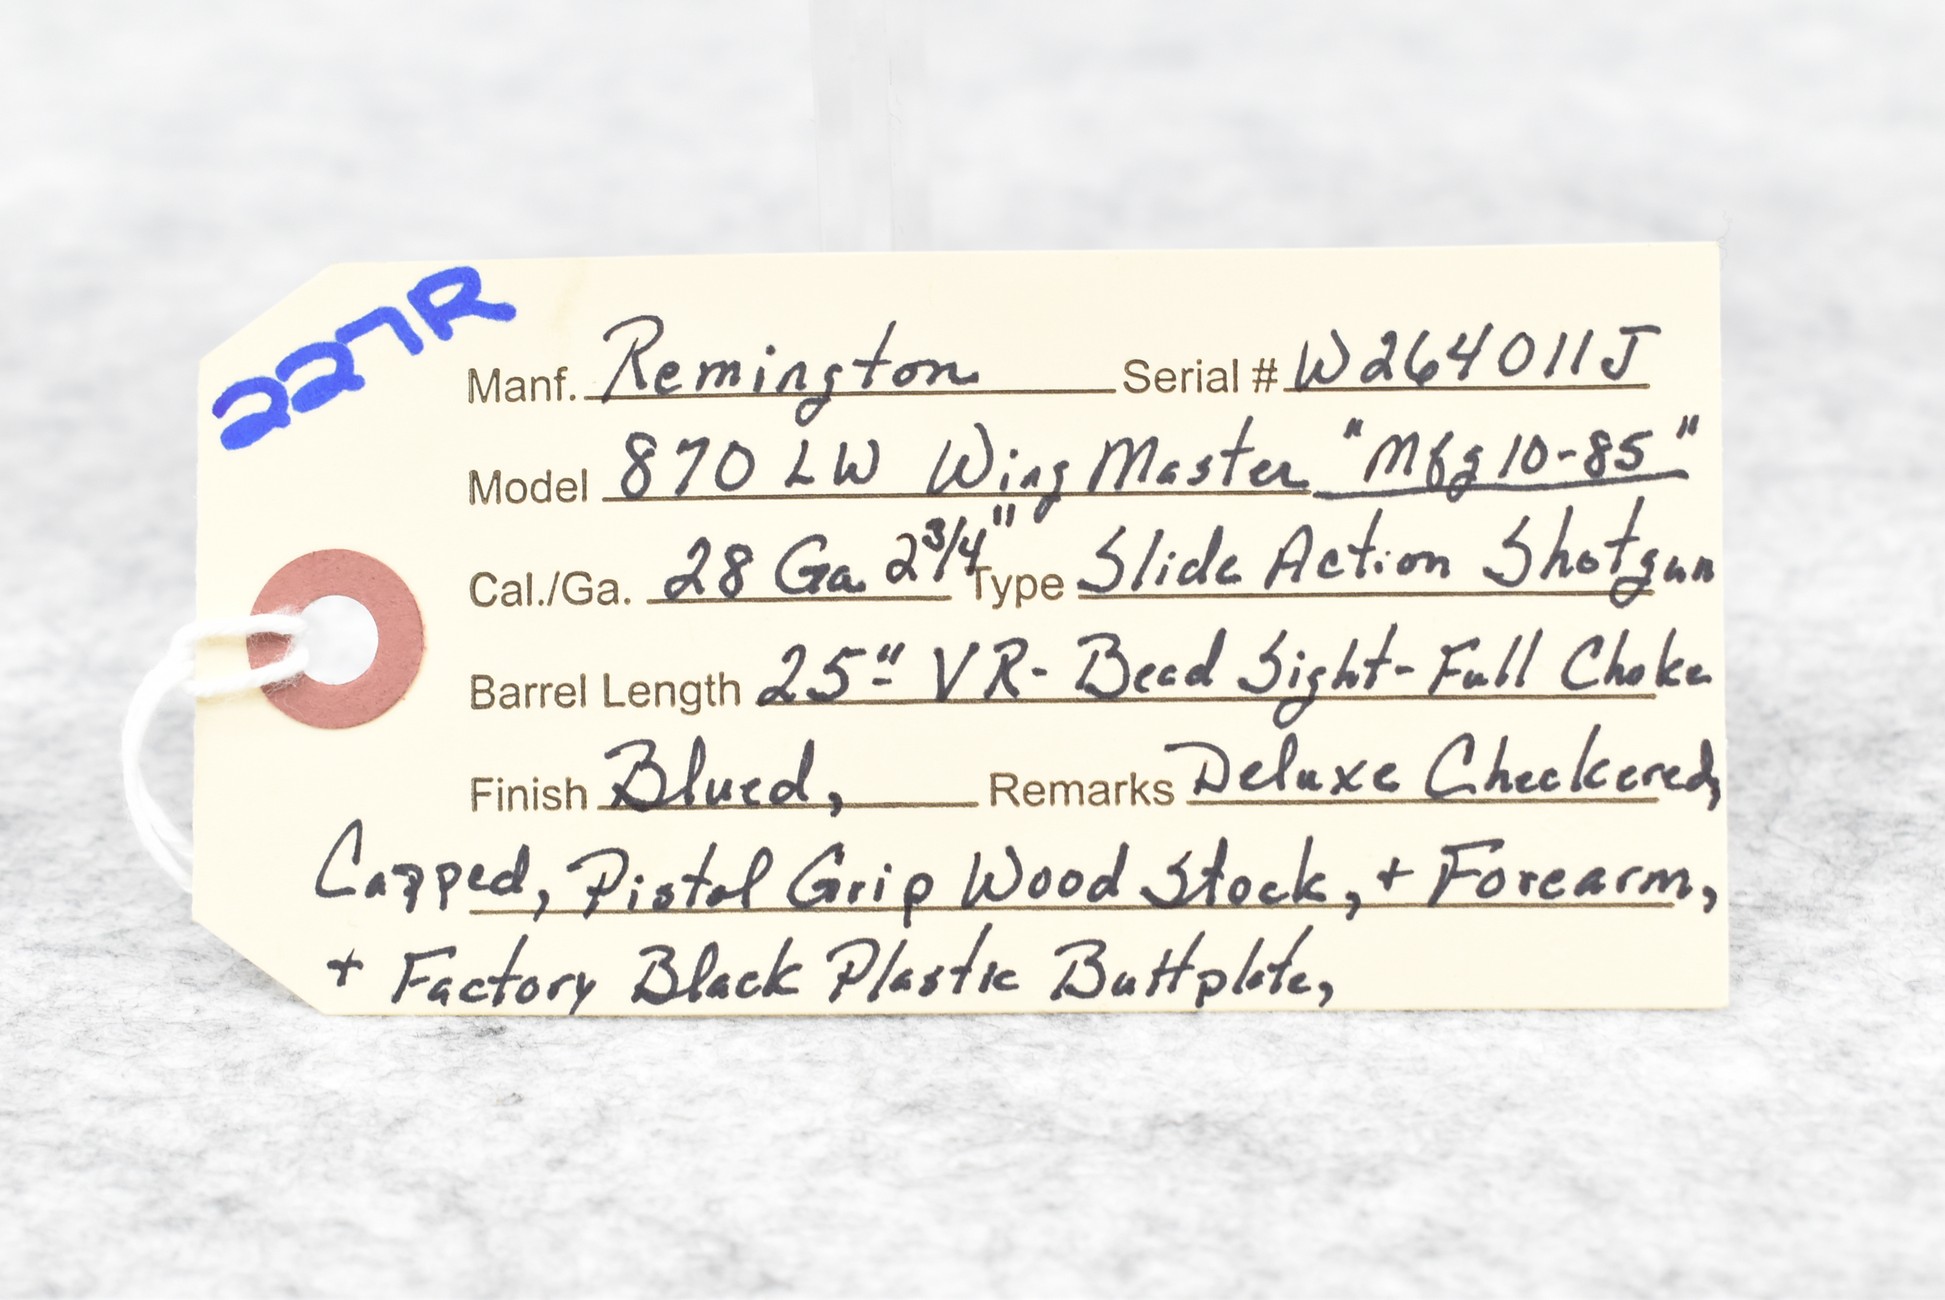 227R
Manf. Remington Serial # W264011J
Model 870 LW WingMaster "Mfg 10-85"
Cal./Ga. 28 Ga 2 3/4" Type Slide Action Shotgun
Barrel Length 25" VR- Bead Sight- Full Choke
Finish Blued, Remarks Deluxe Checkered,
Capped, Pistol Grip Wood Stock, + Forearm,
+ Factory Black Plastic Buttplate,